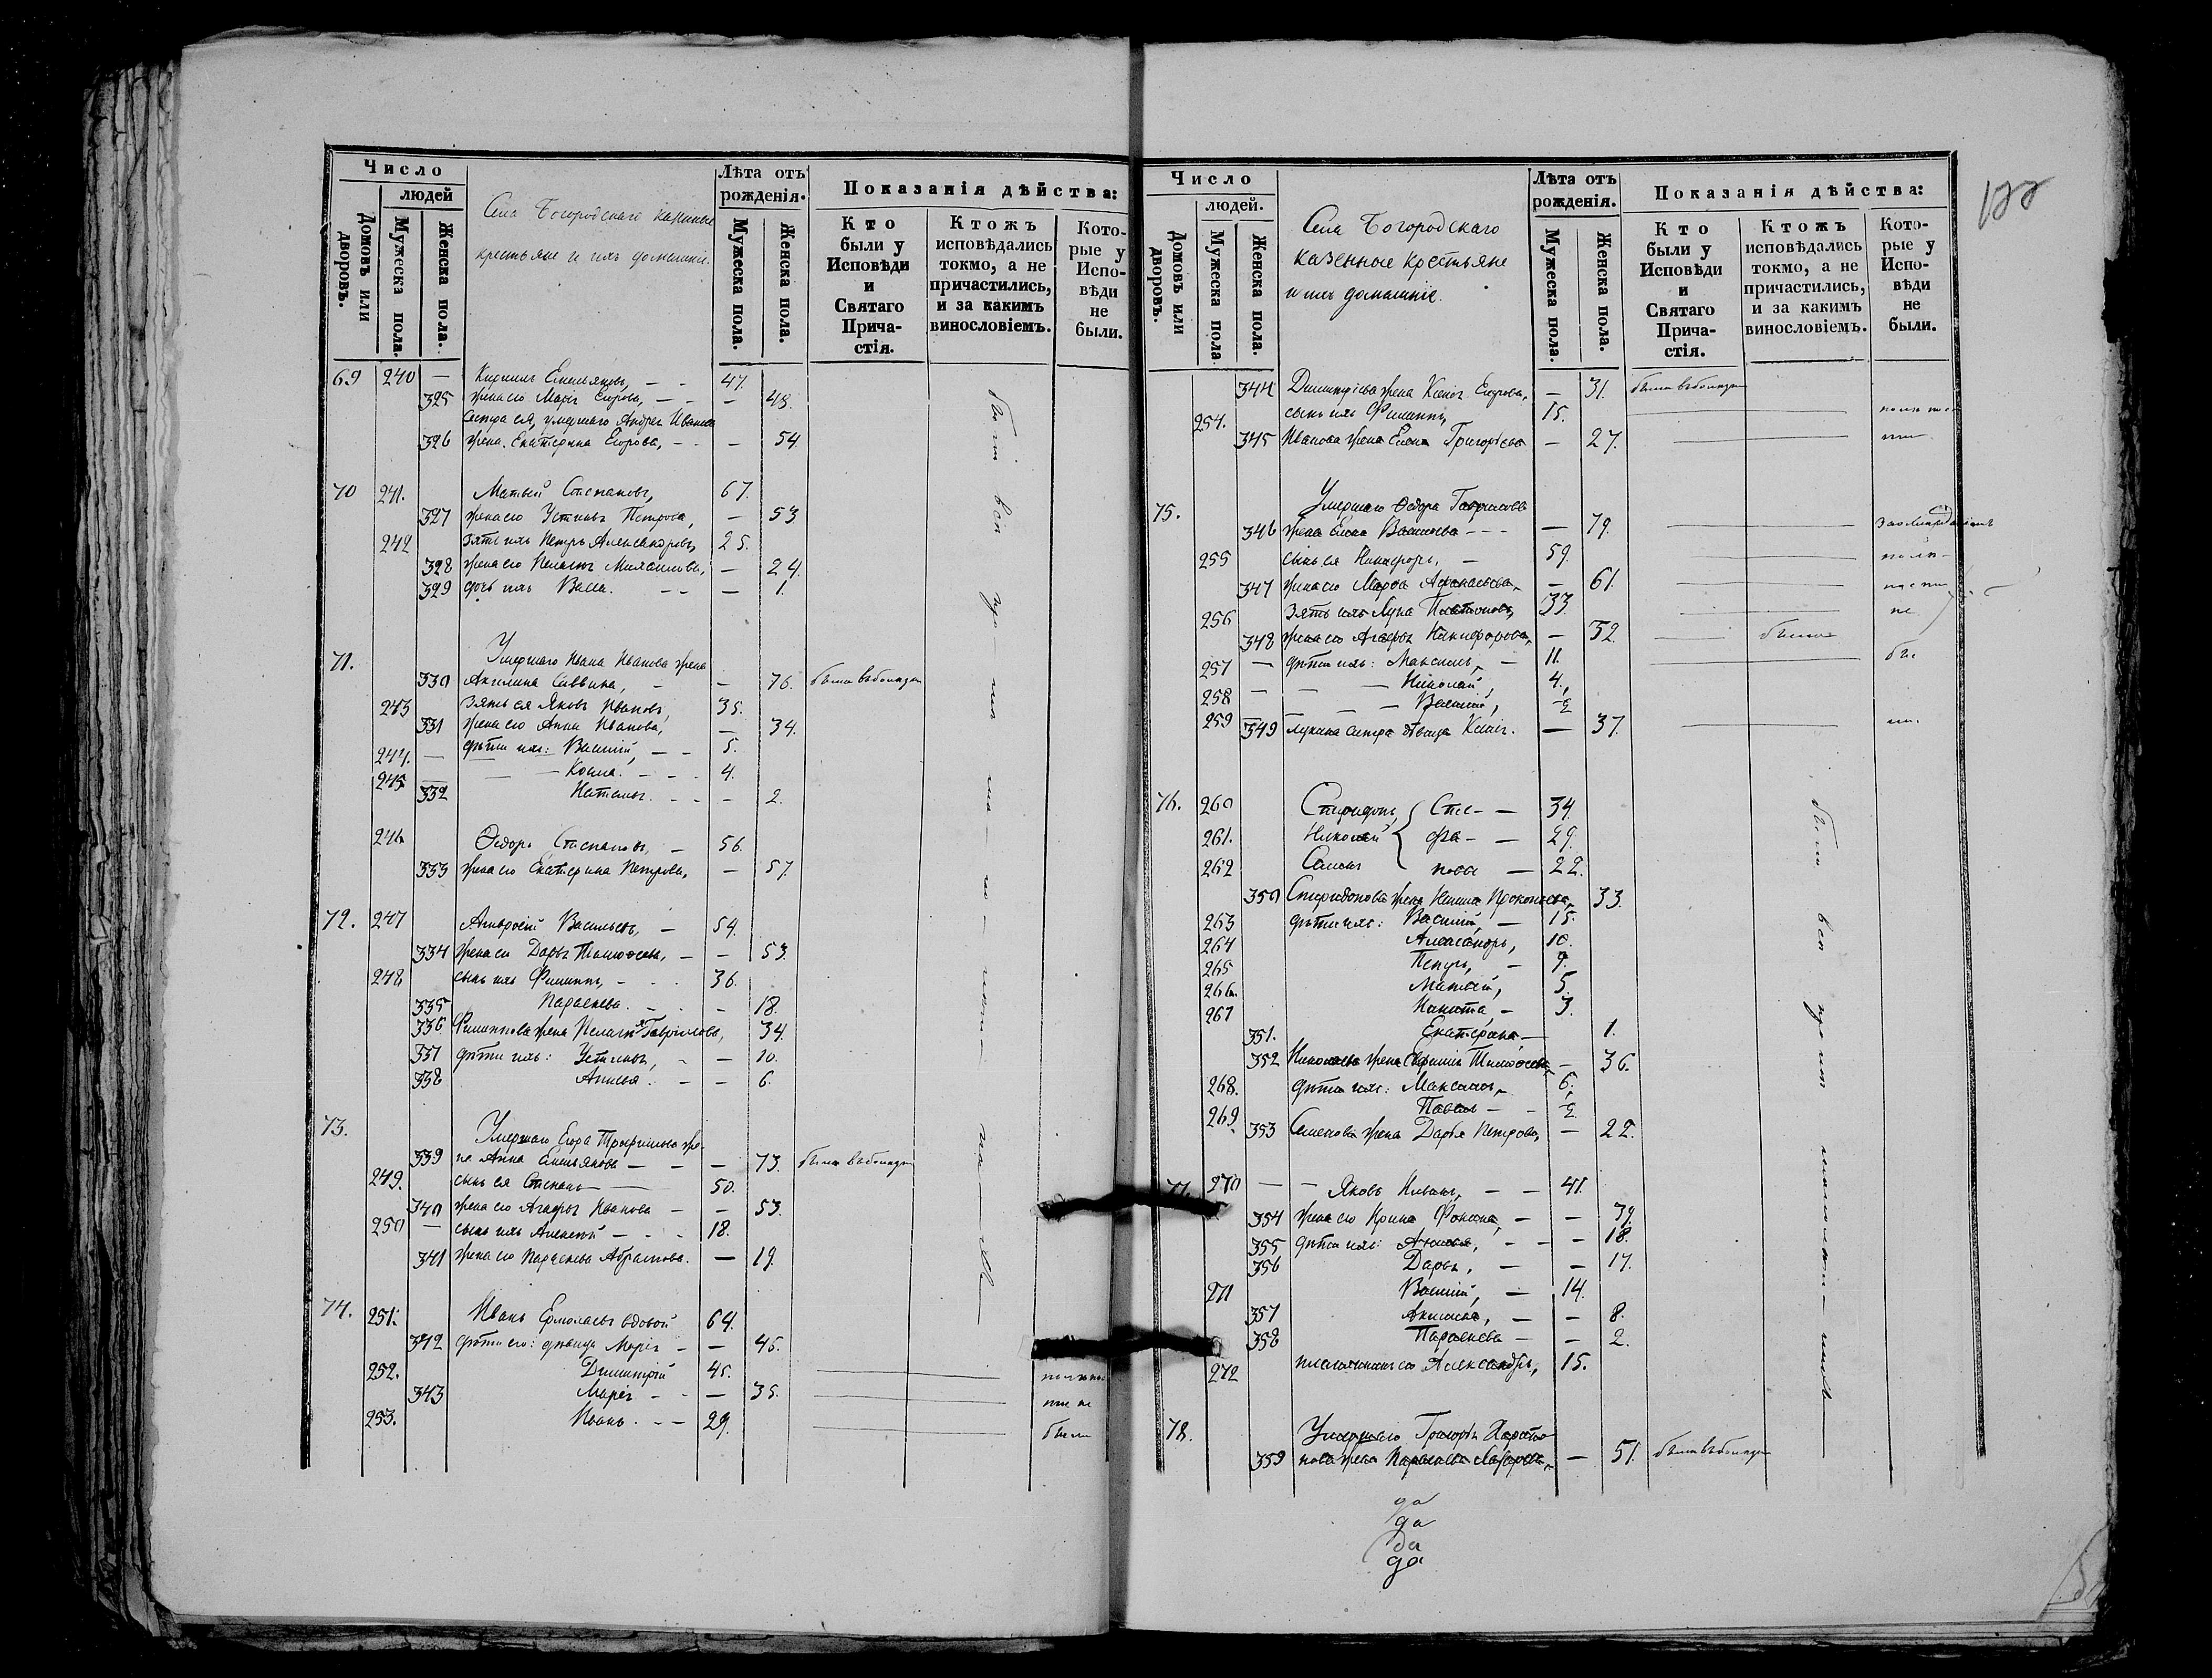 Число
людей
Домовъ или дворовъ.
Мужеска пола.
Женска пола.
Села Богородскаго казенные
крестьяне и ихъ домашніе.
Лѣта отъ рожденія.
Мужеска пола.
Женска пола.
Показанія дѣйства:
Кто были у Исповѣди и Святаго Причастія.
Ктожъ исповѣдались токмо, а не причастились, и за какимъ винословіемъ.
Которые у Исповѣди не были.
69 240 — Кириллъ Емельяновъ, — - 47.
325 жена его Марѳа Егорова, — - — 48.
Сестра ея, умершаго Андрея Иванова
326 жена Екатерина Егорова, — - — 54
70 241. Матвей Степановъ, 67.
327 жена его Устинья Петрова, — 53
242 зять ихъ Петръ Александровъ, 25.
328 жена его Пелагея — 24.
329 дочь ихъ Васса. — - — 1.
71. Умершаго Ивана Иванова жена
330 Акилина Саввина, — — 76. была
243 Зять ея Яковъ Ивановъ, 35.
331 жена его Анна Иванова, — 34.
244. — дѣти ихъ: Василій, — - 5.
245 — — — Козма. - - - 4.
332 Наталья. - - — 2.
246 Ѳедоръ Степановъ, — 56.
333 жена его Екатерина Петрова, — 57.
72. 247 Амвросій Васильевъ, — 54.
334 жена его Дарья Тимоѳеева, — — 53.
248 сынъ ихъ Филиппъ, - - - 36.
335 Параскева. - - — 18.
336 Филиппова жена Пелагея Гаврилова, 34.
337 дѣти ихъ: Устинья, - — 10.
338 Анисья. - — 6.
73. Умершаго Егора Трофимова же-
339 на Анна Емельянова — — — 73. была
249. сынъ ея Степанъ — 50.
340 жена его Агафья Иванова — — 53.
250 — сынъ ихъ Алексей — - - 18.
341 жена его Параскева Абрамова. — 19.
74. 251. Иванъ Ермолаевъ вдовой 64.
342 дѣти его: дѣвица Марія - — 46.
252. Димитрій 45.
343 Марія - - — 35.
253. Иванъ. - - 29. были
Число
людей.
Домовъ или дворовъ.
Мужеска пола.
Женска пола.
Села Богородскаго
казенные крестьяне
и ихъ домашніе.
Лѣта отъ рожденія.
Мужеска пола.
Женска пола.
Показанія дѣйства:
Кто были у Исповѣди и Святаго Причастія.
Ктожъ исповѣдались токмо, а не причастились, и за какимъ винословіемъ.
Которые у Исповѣди не были.
344 Димитріева жена Ксенія Егорова, — 31. была
254. сынъ ихъ Филиппъ, 15.
345 Иванова жена Елена Григорьева — 27.
75. Умершаго Ѳедора Гаврилова
346 жена Елена Васильева - - - — 79.
255 сынъ ея Никифоръ, — 59.
347 жена его Марѳа Аѳанасьева, — 61.
256 зять ихъ Лука Платоновъ, 33. не
348 жена его Агафья Никифорова, — 32.
257 — дѣти ихъ: Максимъ, — 11.
258 — — — Николай, 4.
259 — — — Василій,
349 Лукина сестра дѣвица Ксенія. — 37.
76. 260 Спиридонъ, Сте- — 34.
261. Николай фа- — 29.
262 Симонъ новы — 22.
350 Спиридонова жена Прокопьева, 33.
263 дѣти ихъ: Василій, — 15.
264 Александръ, 10.
265 Петръ, — 9.
266. Матвей, 5.
267 Никита, — 3.
351. Екатерина — 1.
352 Николаева жена Евфимія Тимоѳеева — 36.
268. дѣти ихъ: Максимъ, 6.
269. Павелъ - -
353 Семенова жена Дарья Петрова, — 22.
77. 270 — — Яковъ — — 41.
354 жена его Ирина — — 39.
355 дѣти ихъ: — - — 18.
356 Дарья, — — 17.
271 Василій, — 14.
357 Акилина, — — 8.
358 Параскева — — 2.
272 племянникъ его Александръ, 15.
78. Умершаго Григорія Харито-
359 нова жена Параскева Лазарева, — 51. была
да
да
да
да